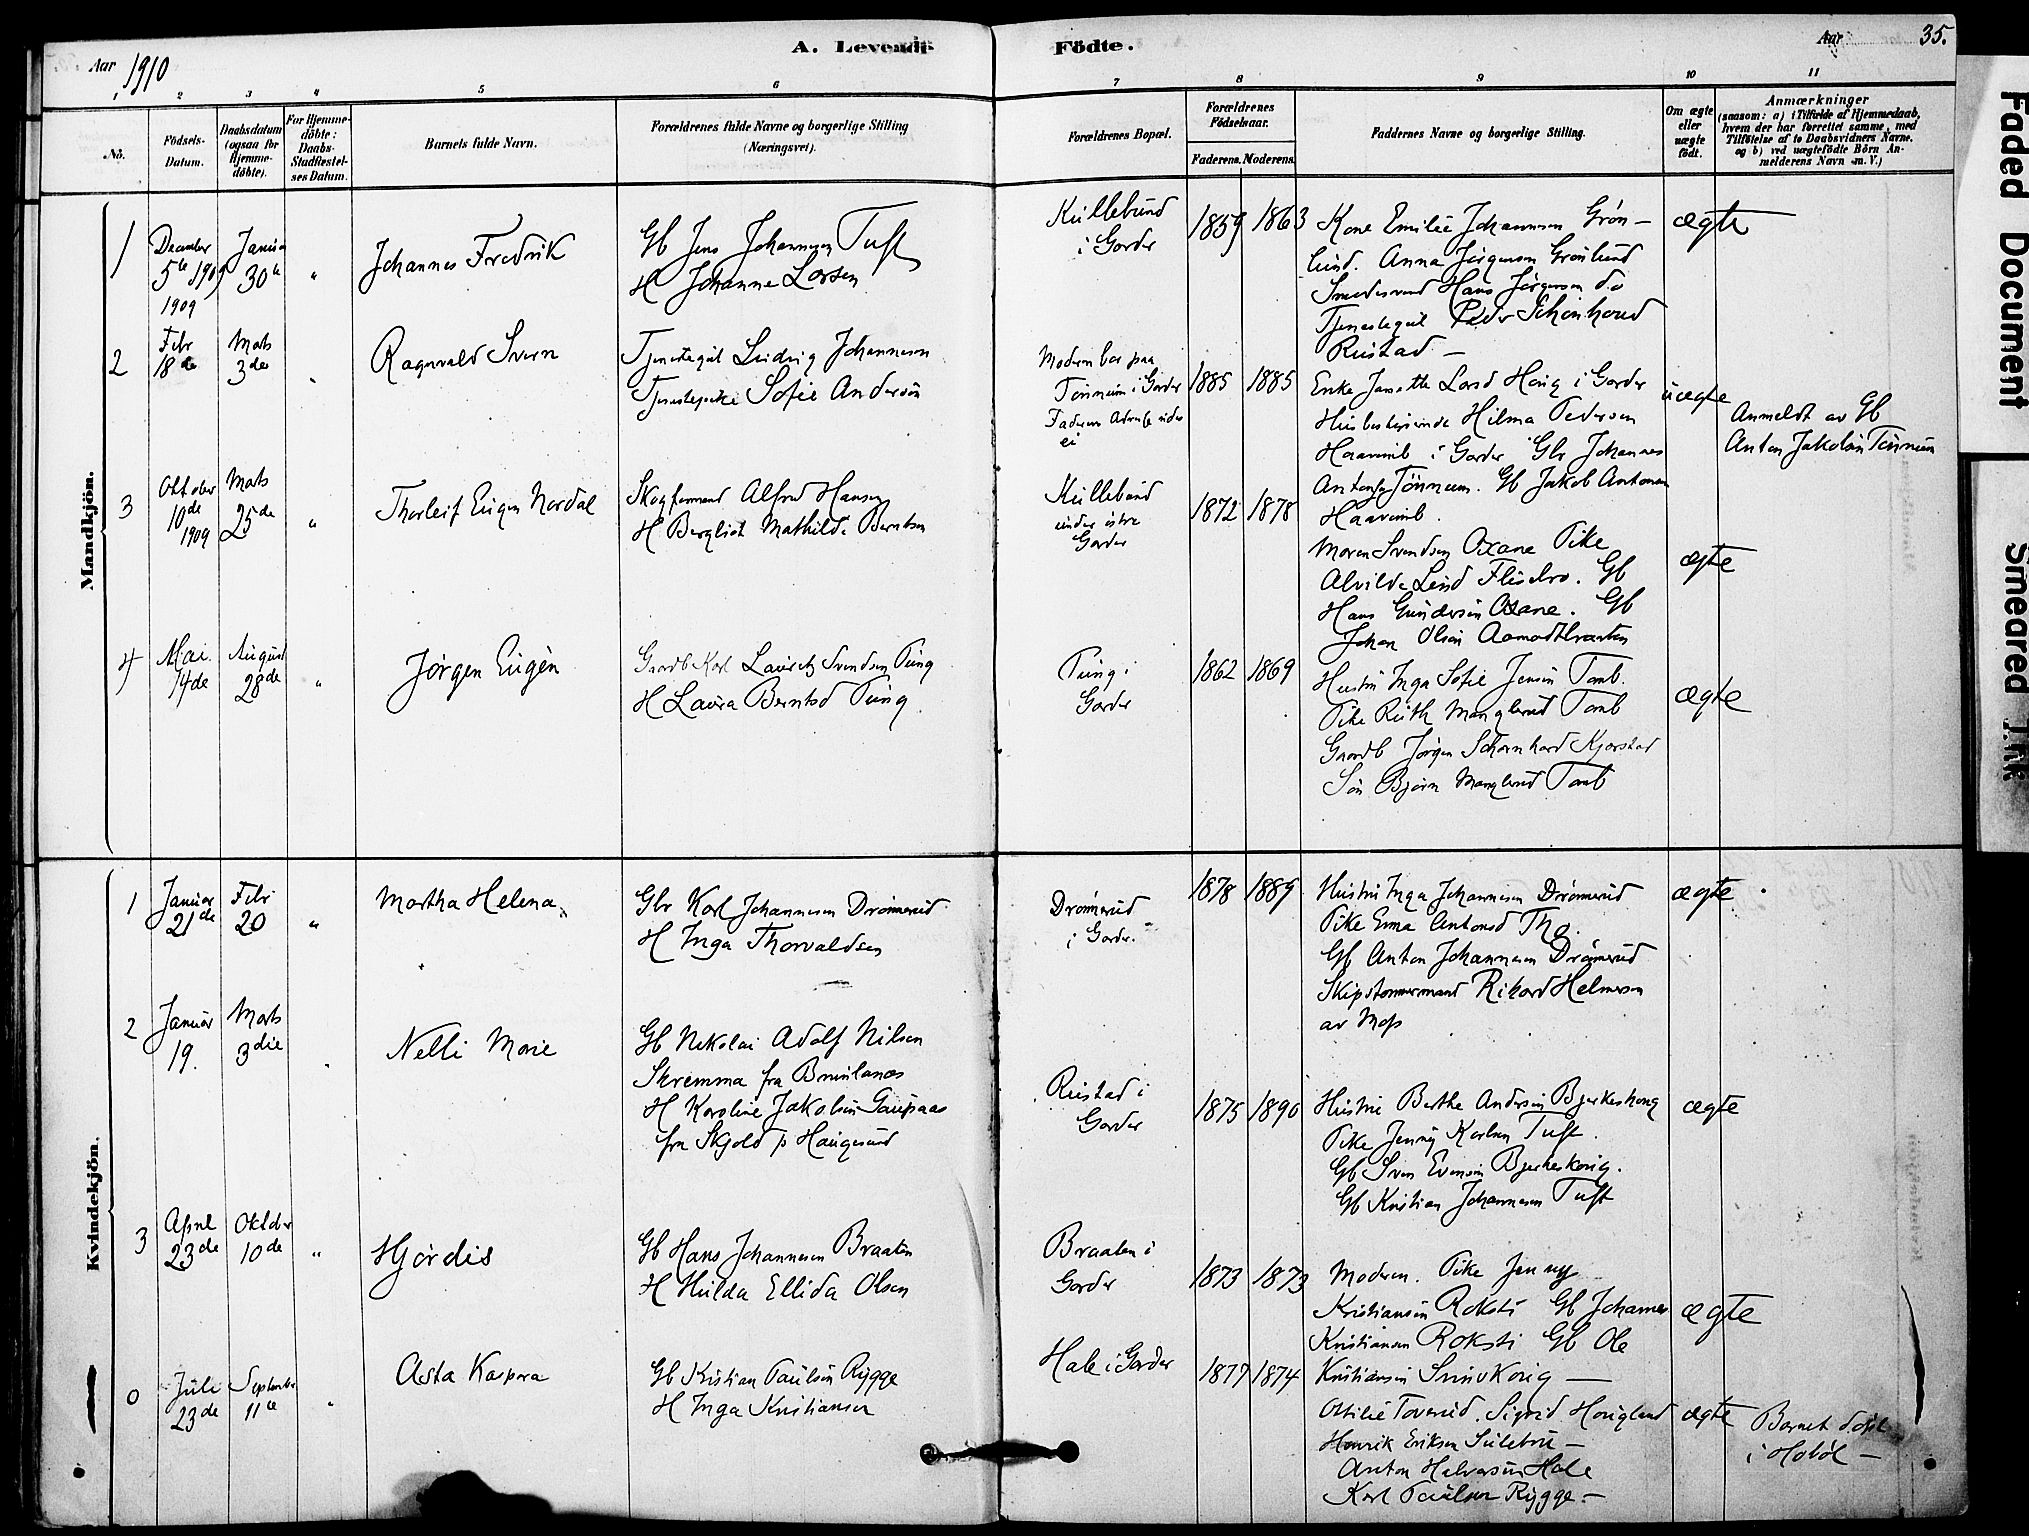 A. Levende Födte.
Aar 1910
Aar
35.
1 2 3 4 5 6 7 8 9 10 11
No.
Födsels-
Datum.
Daabsdatum
(ogsaa for
Hjemme-
döbte).
For Hjemme-
döbte:
Daabs-
Stadfæstel-
ses Datum.
Barnets fulde Navn.
Forældrenes fulde Navne og borgerlige Stilling
(Næringsvei).
Forældrenes Bopæl.
Forældrenes
Födselsaar.
Faderens. Moderens.
Faddernes Navne og borgerlige Stilling.
Om ægte
eller
uægte
födt.
Anmærkninger
(saasom: a) i Tilfælde af Hjemmedaab,
hvem der har forrettet samme, med
Tilföielse af to Daabsvidners Navne.
og b) ved uægtefödte Börn An-
melderens Navn m. V.)
Mandkjön.
1
December
5te 1909
1909
Januar
30te
"
Johannes Fredrik
Gb Jens Johannesen Tuft
H Johanne Larsen
Killebund
i Garder
1859
1863
Kone Emilie Johannesen Grön-
lund. Anna Jörgensen Grönlund
Hans Jörgensen do
Tjenestegut Peder Schönhard
Rustad —
ægte
2
Febr
18de
Mars
3de
"
Ragnvald Svern
Tjenestegut Ludvig Johannesen
Tjenestepike Sofie Andersön
Moderen bor paa
Tönnum i Garder
Faderens Adresse vides
ei
1885
1885
Enke Janette Larsd Haug i Garder
Husbestyrerinde Hilma Pedersen
Haavimb i Garder Gbr Johannes
Antonsen Tönnum. Gb Jakob Antonsen
Haavimb.
uægte
Anmeldt av Gb
Anton Jakobsen Tönnum
3
Oktober
10de
1909
Mars
25de
"
Thorleif Eugen Nordal
Skogformand Alfred Hansen
H Bergliot Mathilde Berntsen
Killebund
under östre
Garder
1872
1878
Maren Svendsen Oxane Pike
Alvilde Lund Flisebro. Gb
Hans Gundersen Oxane. Gb
Johan Olsen Aamodtbraaten
ægte
4
Mai
14de
August
28de
"
Jörgen Eugèn
Gaardb Karl Lauritz Svendsen Ping
H Laura Berntsd Ping
Ping i
Garder
1862
1869
Hustru Inga Sofie Jensen Tomb.
Pike Ruth Manglerud Tomb
Gaardb Jörgen Schörnhard Kjærstad
Sön Björn Manglerud Tomb
ægte
Kvindekjön.
1
Januar
21de
Febr
20
"
Martha Helena
Gbr Karl Johannesen Drömerud
H Inga Thorvaldsen
Drömerud
i Garder.
1878
1889
Hustru Inga Johannesen Drömerud
Pike Emma Antonsd Tho.
Gb Anton Johannesen Drömerud
Skipstömmermand Rikard Helmersen
av Moss
ægte
2
Januar
19.
Mars
3die
Nelli Marie
Gb Nikolai Adolf Nilsen
Skremma fra Brunlanæs
H Karoline Jakobsen Gaupaas
fra Skjold p Haugesund
Rustad i
Garder
1875
1890
Hustru Berthe Andersen Bjerkeskoug
Pike Jenny Karlsen Tuft.
Gb Sven Evensen Bjerkeskoug.
Gb Kristian Johannesen Tuft
ægte
3
April
23de
Oktober
10de
"
Hjördis
Gb Hans Johannesen Braaten
H Hulda Ellida Olsen
Braaten i
Garder
1873
1873
Moderen. Pike Jenny
Kristiansen Roksti Gb Johannes
Kristiansen Roksti Gb Ole
Kristiansen —
ægte
0
Juli
23de
September
11te
"
Asta Kaspara
Gb Kristian Paulsen Rygge
H Inga Kristiansen
Hale i Garder
1877
1874
Ottilie Toverud. Sigrid Hougland
Henrik Eriksen Sulebru —
Anton Halvorsen Hale
Karl Paulsen Rygge. —
ægte
Barnet döpt
i Hobøl —
Faded Document
Smeared Ink